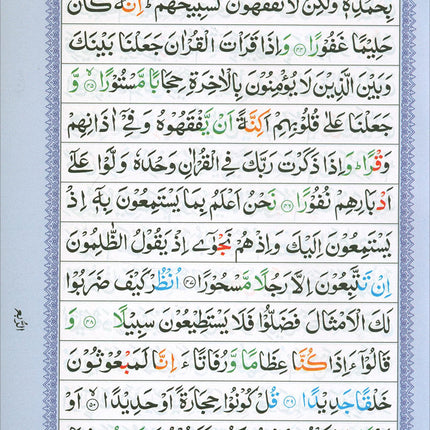 بِحَمْدِهٖ وَلٰكِنْ لَّا تَفْقَهُوْنَ تَسْبِيْحَهُمْ ؕ اِنَّهٗ كَانَ
حَلِيْمًا غَفُوْرًا ﴿۴۴﴾ وَاِذَا قَرَاْتَ الْقُرْاٰنَ جَعَلْنَا بَيْنَكَ
وَبَيْنَ الَّذِيْنَ لَا يُؤْمِنُوْنَ بِالْاٰخِرَةِ حِجَابًا مَّسْتُوْرًا ﴿۴۵﴾ وَّ
جَعَلْنَا عَلٰى قُلُوْبِهِمْ اَكِنَّةً اَنْ يَّفْقَهُوْهُ وَفِيْۤ اٰذَانِهِمْ
وَقْرًا ؕ وَاِذَا ذَكَرْتَ رَبَّكَ فِى الْقُرْاٰنِ وَحْدَهٗ وَلَّوْا عَلٰٓى
اَدْبَارِهِمْ نُفُوْرًا ﴿۴۶﴾ نَحْنُ اَعْلَمُ بِمَا يَسْتَمِعُوْنَ بِهٖۤ اِذْ
يَسْتَمِعُوْنَ اِلَيْكَ وَاِذْ هُمْ نَجْوٰٓى اِذْ يَقُوْلُ الظّٰلِمُوْنَ
اِنْ تَتَّبِعُوْنَ اِلَّا رَجُلًا مَّسْحُوْرًا ﴿۴۷﴾ اُنْظُرْ كَيْفَ ضَرَبُوْا
لَكَ الْاَمْثَالَ فَضَلُّوْا فَلَا يَسْتَطِيْعُوْنَ سَبِيْلًا ﴿۴۸﴾ وَ
قَالُوْۤا ءَاِذَا كُنَّا عِظَامًا وَّرُفَاتًا ءَاِنَّا لَمَبْعُوْثُوْنَ
خَلْقًا جَدِيْدًا ﴿۴۹﴾ قُلْ كُوْنُوْا حِجَارَةً اَوْ حَدِيْدًا ﴿۵۰﴾ اَوْ
الربع